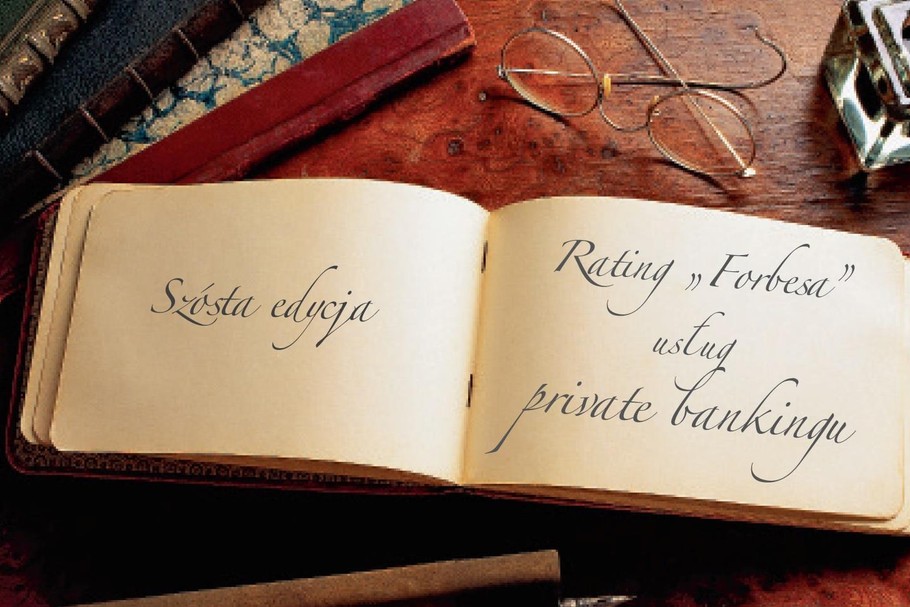 Szósta edycja
Rating „Forbesa”
usług
private bankingu